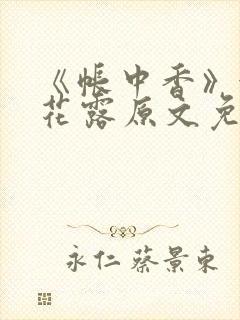 《帐中香》
花露原文免
永仁蔡景东